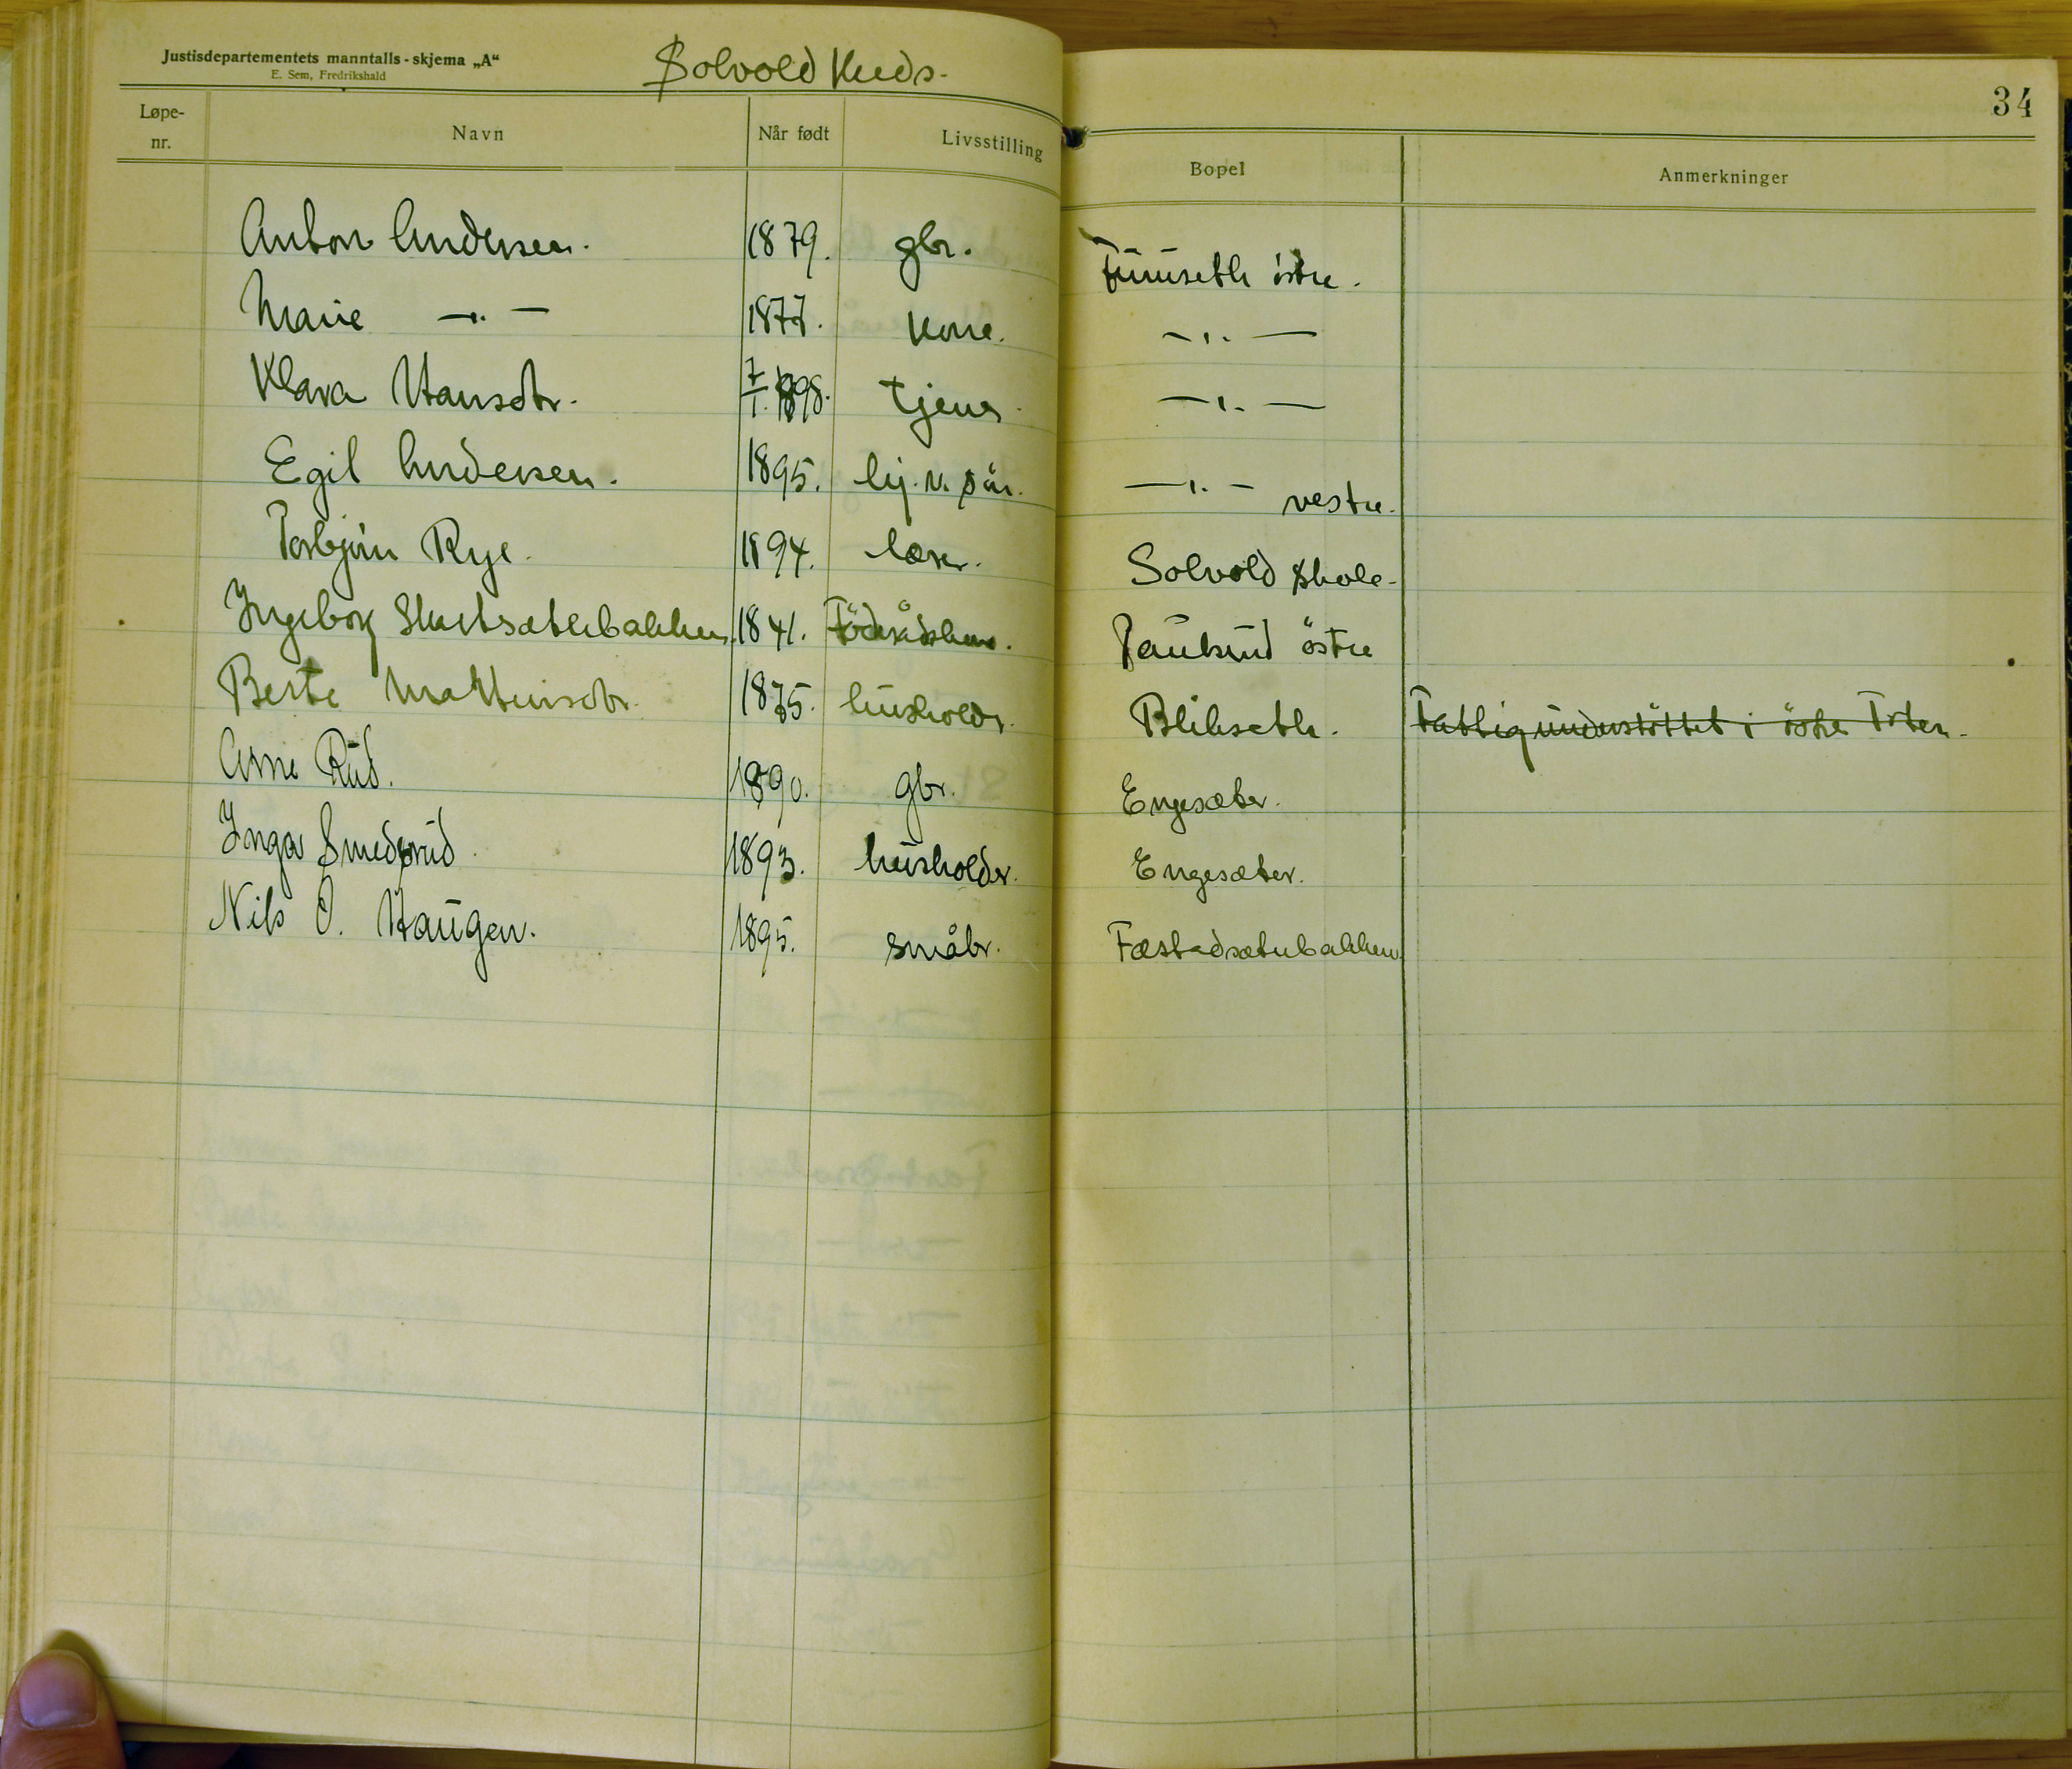 Justisdepartementets manntalls-skjema „A“
E. Sem, Fredrikshald
Solvold Kreds.
34
Løpe-nr. Navn Når født Livsstilling Bopel Anmerkninger
Anton Andersen. 1879. gbr. Furuseth östre.
Marie —"— 1877. kone. —"—
Klara Hansdtr. 7/1. 1898. tjener —"—
Egil Andersen. 1895. hj. v. får. —"— vestre.
Torbjörn Rye. 1894. lærer. Solvold skole.
Ingeborg 1841. Föderådskone. Paulsrud östre
Berte Mathinsdtr. 1875. husholdr. Blikseth. Fattigunderstöttet i östre Toten.
Arne Rud. 1890. gbr. Engesæter.
Inga Smedsrud. 1893. husholder. Engesæter.
Nils O. Haugen. 1895. småbr. Fæstadsæterbakken